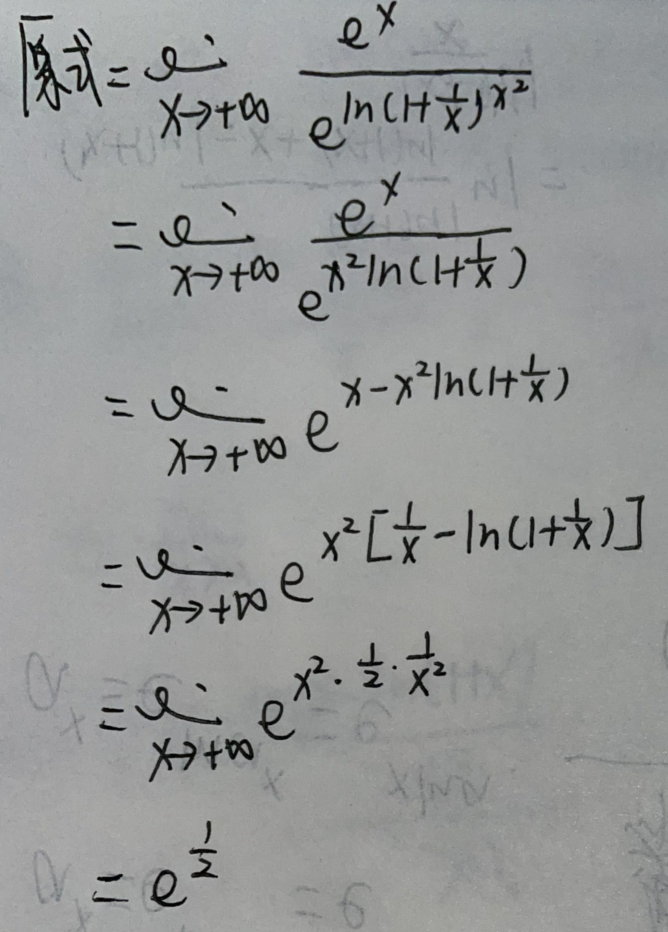 原式 = lim x→+∞ e^x / e^{ln(1+1/x)^{x^2}}
= lim x→+∞ e^x / e^{x^2 ln(1+1/x)}
= lim x→+∞ e^{x-x^2 ln(1+1/x)}
= lim x→+∞ e^{x^2[1/x - ln(1+1/x)]}
= lim x→+∞ e^{x^2·1/2·1/x^2}
= e^{1/2}